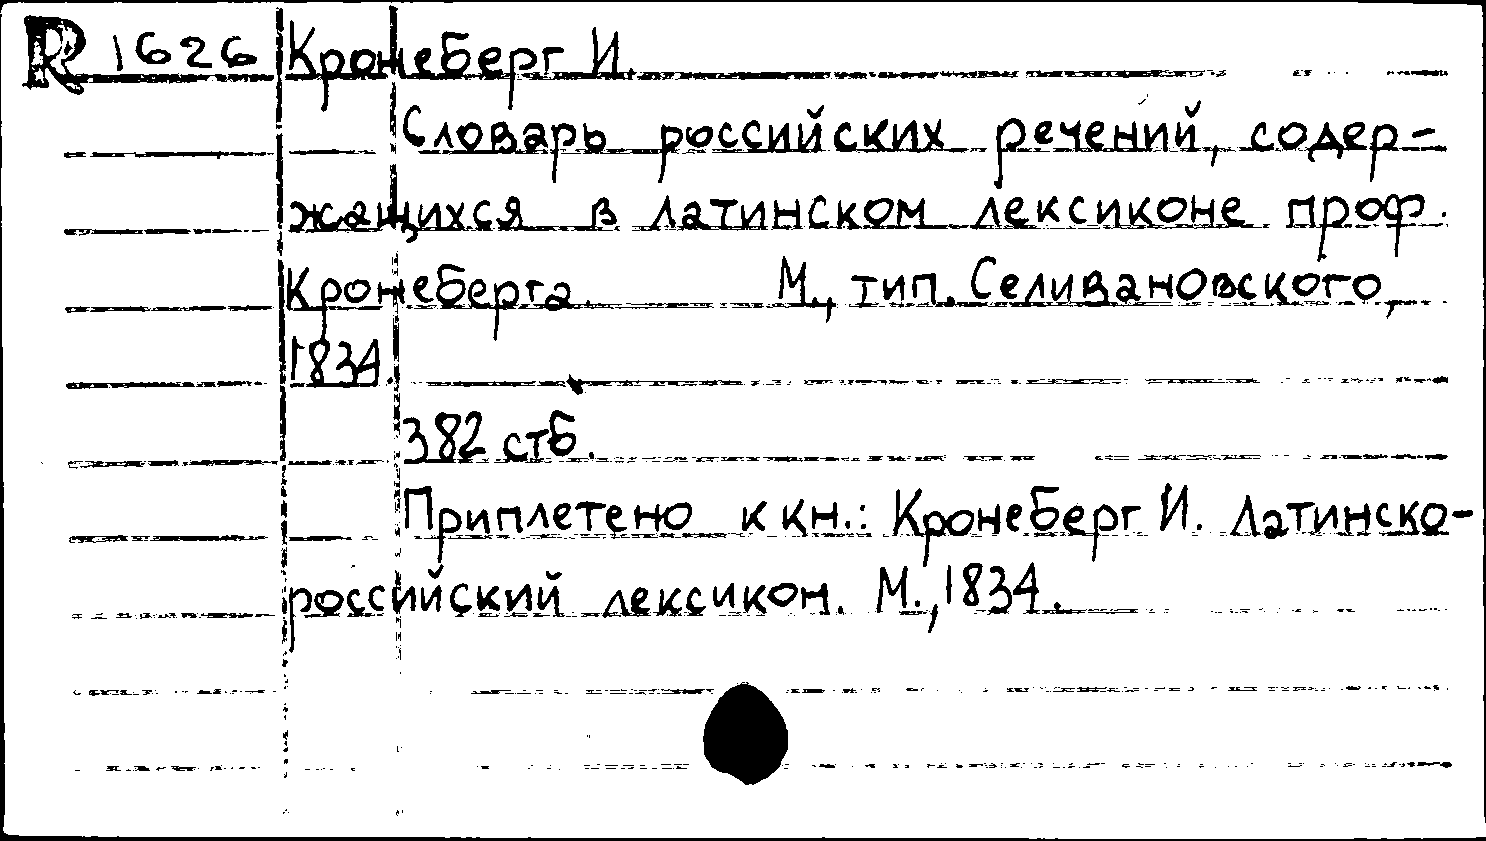 R 1626 Кронеберг И.
Словарь российских речений, содер-
жащихся в латинском лексиконе проф.
Кронеберга. М., тип. Селивановского,
1834.
382 стб.
Приплетено к кн.: Кронеберг И. Латинско-
российский лексикон. М., 1834.